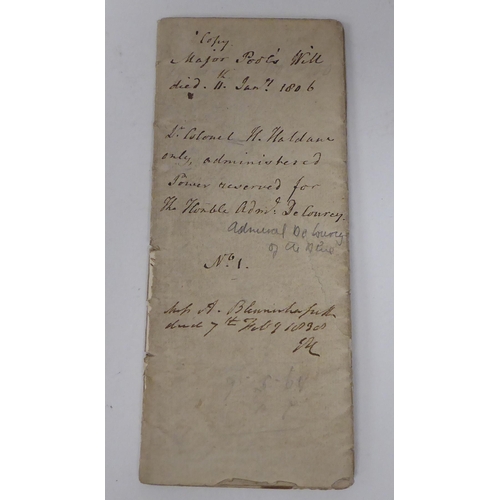 Copy
Major Pool's Will
died 11th Jany 1806
Lt Colonel H. Haldane
only, administered
Power reserved for
The Honble Adml De Courcy
Admiral De Courcy
of the
No 1.
A. Blennerhassett
died 7th Feby 1838